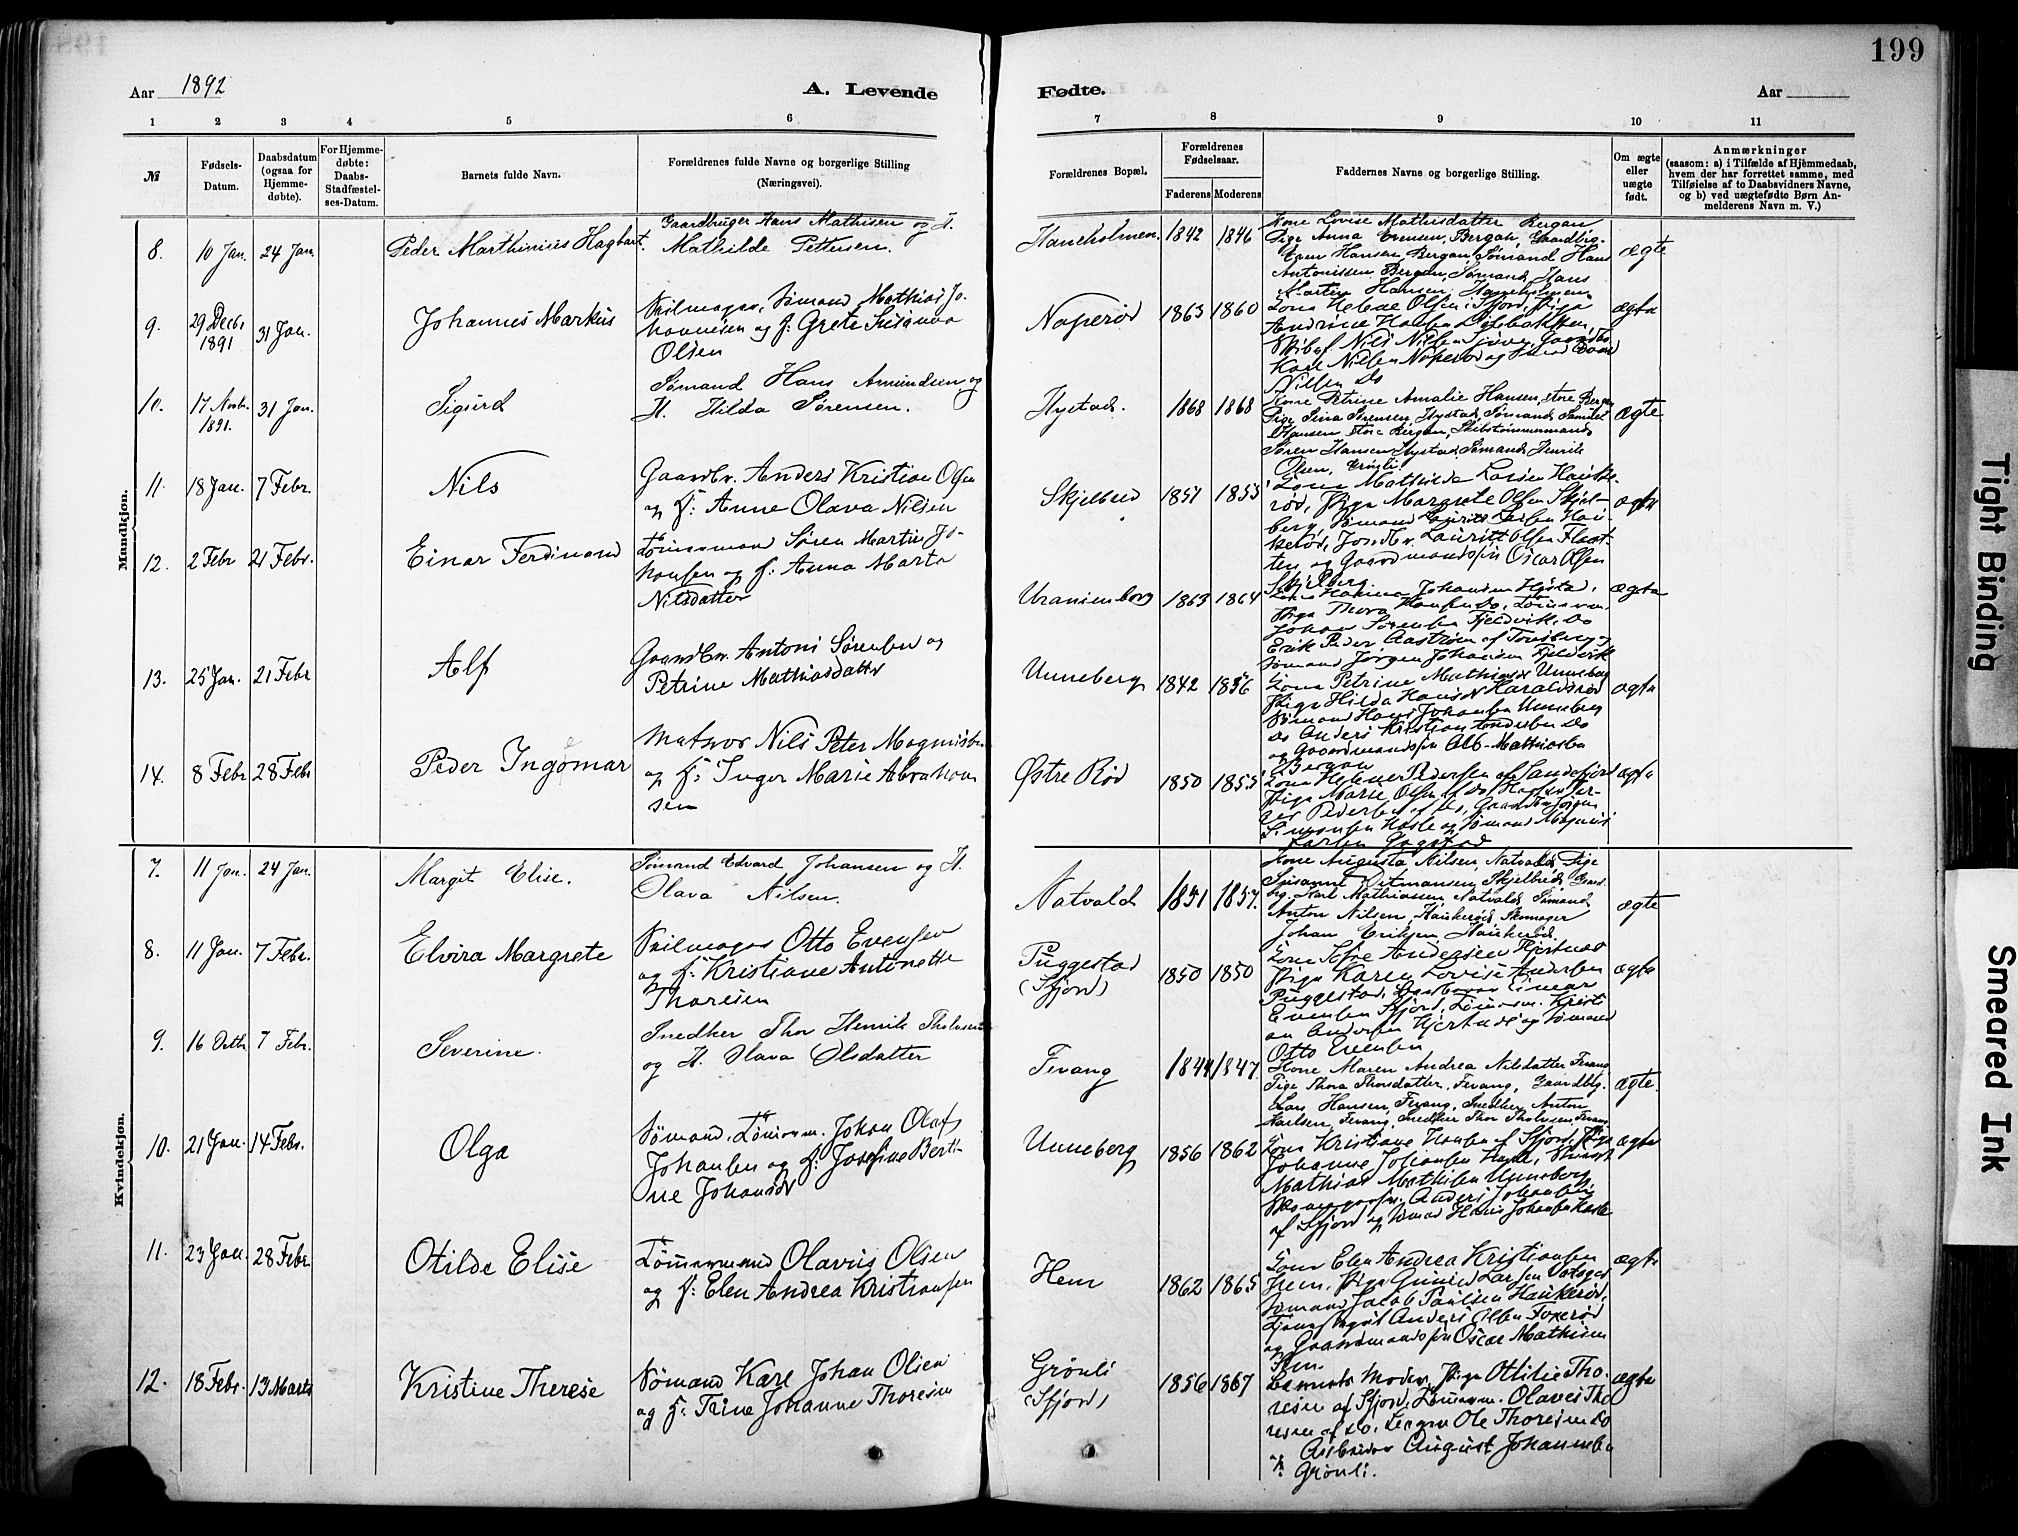 199
Aar 1892
A. Levende
Fødte.
Aar
1 2 3 4 5 6 7 8 9 10 11
№
Fødsels-
Datum.
Daabsdatum
(ogsaa for
Hjemme-
døbte).
For Hjemme-
døbte:
Daabs-
Stadfæstel-
ses-Datum.
Barnets fulde Navn.
Forældrenes fulde Navne og borgerlige Stilling
(Næringsvei).
Forældrenes Bopæl.
Forældrenes
Fødselsaar.
Faderens Moderens
Faddernes Navne og borgerlige Stilling.
Om ægte
eller
uægte
født.
Anmærkninger
(saasom: a) i Tilfælde af Hjemmedaab,
hvem der har forrettet samme, med
Tilføielse af to Daabsvidners Navne,
og b) ved uægtefødte Børn An-
melderens Navn m. V.)
Mandkjøn.
8. 10 Jan. 24 Jan. Peder Marthinius Hagbart.
Gaardbruger Hans Mathisen og H.
Mathilde Pettersen.
Haneholmen. 1842 1846
Kone Lovise Mathisdatter Bergan
Pige Anna Evensen, Bergan, Gaardbrg.
Even Hansen Bergan, Sømand Hans
Antonissen Bergan, Sømand Hans
Martin Hansen, Haneholmen
ægte
9. 29 Decb. 1891 31 Jan. Johannes Markus
Seilmager, Sømand Mathias Jo-
hannesen og H: Grete Susanna
Olsen
Noperød 1863 1860
Kone Helene Olsen i Sfjord, Pige
Andrine Hansen
Nils Nilsen
Karl Nilsen Noperød og
Nilsen Do
ægte
10. 17 Novb. 1891. 31 Jan. Sigurd
Sømand Hans Amundsen og
H. Hilda Sørensen.
Hystad. 1868 1868
Kone Petrine Amalie Hansen, store Bergan
Pige Lina Sørensen Hystad, Sømand Samuel
Hansen store Bergan, Skibstømmermand
Søren Hansen Hystad, Sømand Henrik
Olsen, Grønli
ægte
11. 18 Jan. 7 Febr. Nils
Gaardbr. Anders Kristian Olsen
og H: Anne Olava Nilsen
Skjelbred 1851 1855
Kone Mathilde Larsen Hauke-
rød, Pige Margrete Olsen Skjel-
berg, Sømand Laurits Larsen Hau-
kerød, Jordbr. Lauritz Olsen Flaat-
ten og Gaardmandssøn Oscar Olsen
Skjelberg.
ægte
12. 2 Febr 21 Febr. Einar Ferdinand
Tømmermand Søren Martin Jo-
hansen og H: Anna Marta
Nilsdatter
Uranienborg 1863 1864
Kone Hanna Johansen Hystad,
Pige Thora Hansen Do, Tømmerm.
Johan Sørensen Fjeldvik, Do
Erik Peder Aastrøm af Tønsberg og
Sømand Jørgen Johansen Fjeldvik
ægte
13. 25 Jan. 21 Febr Alf
Gaardbr. Antoni Sørensen og
Petrine Mathiasdatter
Unneberg 1842 1856
Kone Petrine Mathiasen Unneberg
Pige Hilda Hansen Haraldsrød
Sømand Hans Johansen Unneberg
Do Anders Kristian Andersen Do
og Gaardmandssøn Alb. Mathiasen
Bergan
ægte
14. 8 Febr 28 Febr Peder Ingomar
Matros Nils Peter Magnussen
og H: Inger Marie Abraham-
sen
Østre Rød 1850 1855
Kone Helene Pedersen af Sandefjord
Pige Marie Olsen af Do
Pedersen af Do, Gaardbr. Jørgen
Simonsen Hasle og Sømand Magnus
Larsen Gogstad
ægte
Kvindekjøn.
7. 11 Jan. 24 Jan. Margit Elise.
Sømand Edvard Johansen og H.
Olava Nilsen.
Natvald 1851 1857.
Kone Augusta Nilsen, Natvald, Pige
Susanne Ditmansen Skjelbred, Gaard-
brg. Karl Mathiassen Natvald Sømand
Anton Nilsen, Haukerød, Skomager
Johan Eriksen Haukerød.
ægte
8. 11 Jan. 7 Febr. Elvira Margrete
Seilmager Otto Evensen
og H: Kristiane Antonette
Thoresen
Puggestad
(Sfjord) 1850 1850
Kone Sofie Andersen Hjertnæs
Pige Karen Lovise Andersen
Puggestad, Einar
Evensen Sfjord, Tømmerm. Kristi-
an Andersen Hjertnæs og Sømand
Otto Evensen
ægte
9. 16 Octbr 7 Febr. Severine.
Snedker Thor Henrik Tholvsen
og H. Olava Olsdatter
Fevang 1844 1847.
Kone Maren Andrea Nilsdatter Fevang
Pige Thora Thorsdatter, Fevang, Gaardbg.
Lars Hansen, Fevang, Snedker Anton
Karlsen, Fevang, Snedker Thor Tholvsen, Fevang
ægte.
10. 21 Jan. 14 Febr. Olga
Sømand, Tømmerm. Johan Olaf
Johansen og H: Josefine Berti-
ne Johansdr
Unneberg 1856 1862
Kone Kristiane Hansen af Sfjord, Pige
Johanne Johansen Hasle,
Mathias Mathisen Unneberg,
Anders Johansen
af Sfjord og Sømand Hans Johansen Hasle
ægte
11. 23 Jan. 28 Febr. Otilde Elise
Tømmermand Olavus Olsen
og H: Elen Andrea Kristiansen
Hem 1862 1865
Kone Elen Andrea Kristiansen
Hem, Pige Gunild Larsen
Sømand Jacob Paulsen Haukerød,
Anders Olsen Foxerød
og Gaardmandssøn Oscar Mathisen
Hem.
ægte
12. 18 Febr. 13 Marts Kristine Therese
Sømand Karl Johan Olsen
og H: Trine Johanne Thoresen
Grønli
(Sfjord) 1856 1867
Barnets Moder, Pige Otilie Tho-
resen af Sfjord, Tømmerm. Olaves Tho-
resen af Do. Ole Thoresen Do
og Arbeider August Johannesen
Grønli.
ægte
Tight Binding
Smeared Ink